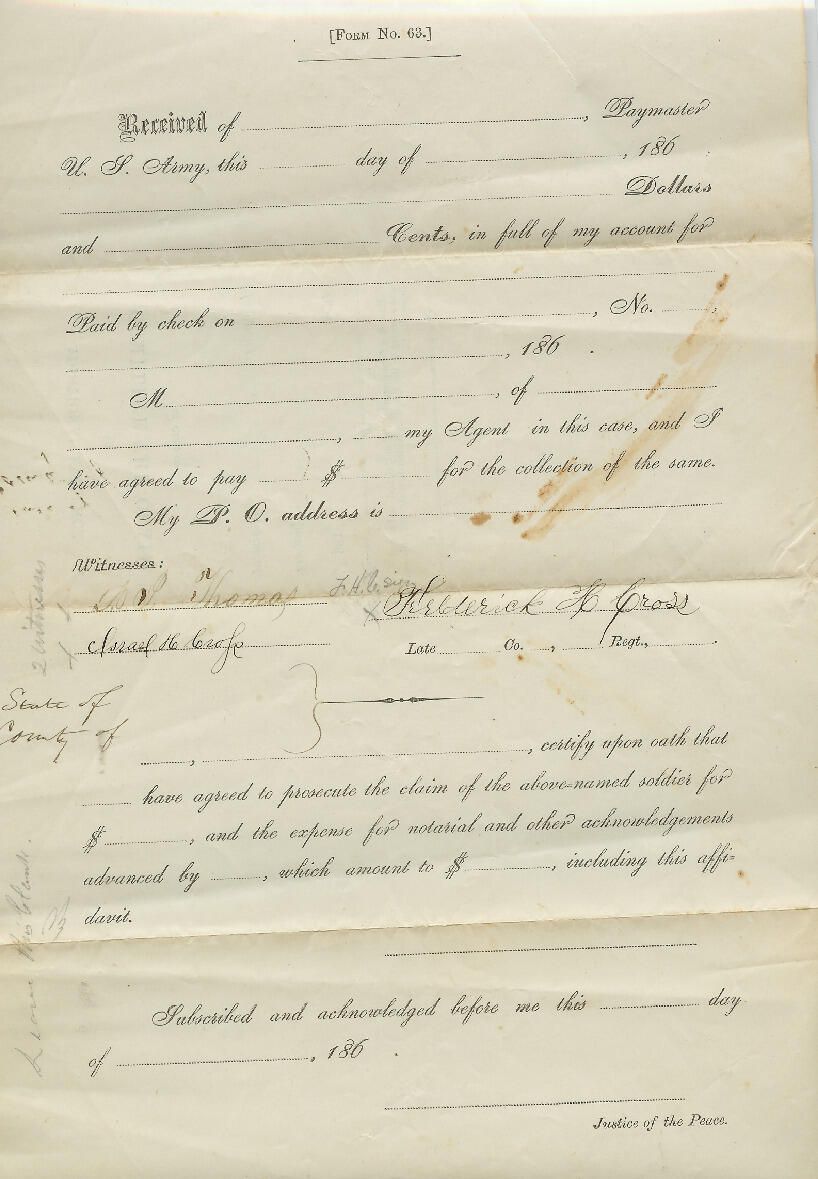 [FORM No. 63.]
Received of , Paymaster
U. S. Army, this day of , 186 .
Dollars
and Cents, in full of my account for
Paid by check on , No. ,
, 186 .
M , of
, my Agent in this case, and I
have agreed to pay $ for the collection of the same.
My P. O. address is
Witnesses:
Thomas
Frederick H Cross
Israel H Cross
Late Co. , Regt.,
2 Witnesses
State of
County of
, , certify upon oath that
have agreed to prosecute the claim of the above-named soldier for
$ , and the expense for notarial and other acknowledgements
advanced by , which amount to $ , including this affi-
davit.
Leave this blank.
Subscribed and acknowledged before me this day
of , 186 .
Justice of the Peace.